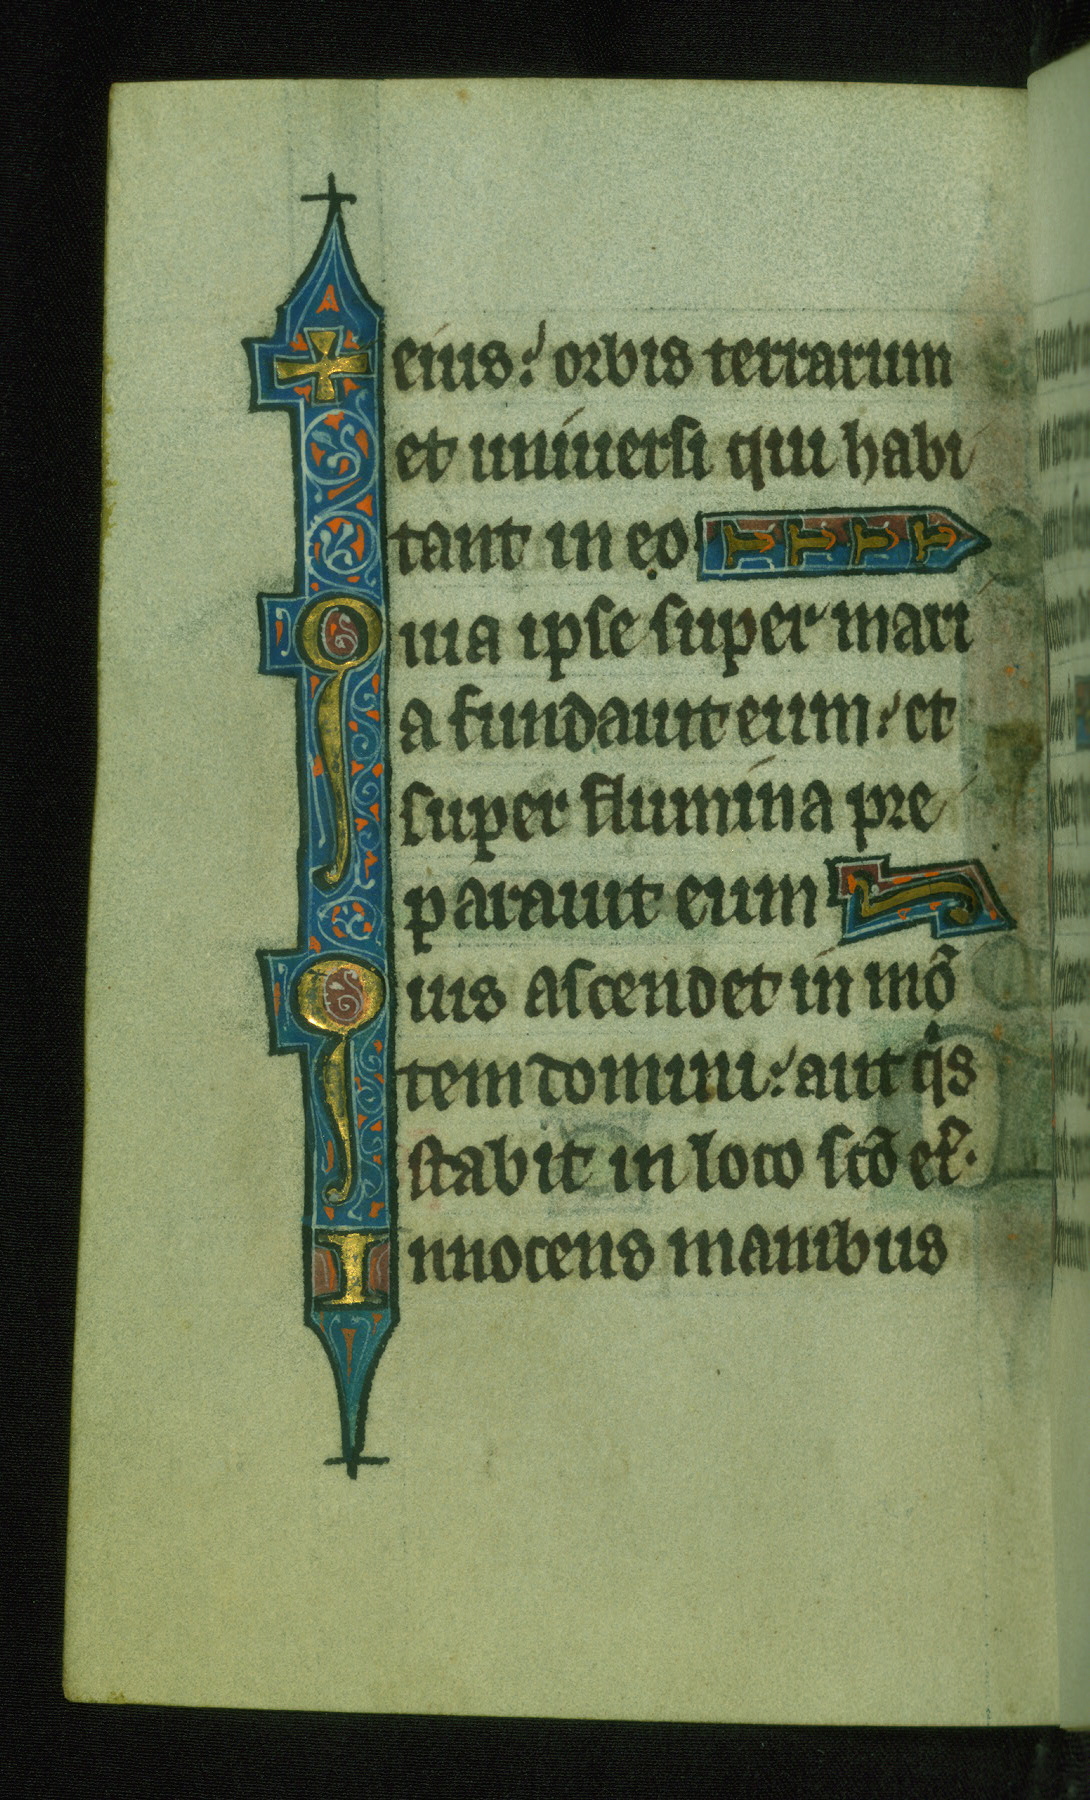 eius: orbis terrarum
et uniuersi qui habi
tant in eo
Quia ipse super mari
a fundauit eum: et
super flumina pre
parauit eum
Quis ascendet in mō
tem domini: aut qⁱs
stabit in loco scō eꝰ.
Innocens manibus